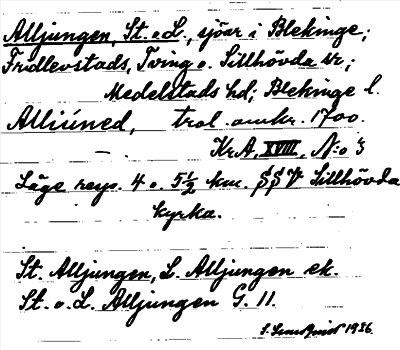 Alljungen, St. o L., sjöar i Blekinge;
Fridlevstads, Tving o. Sillhövda sr;
Medelstads hd; Blekinge l.
Alliúned, trol. omkr. 1700.
Kr A, XVIII, N:o 3
Läge resp. 4 o. 5 1/2 km. SSV Sillhövda
kyrka.
St. Alljungen, L. Alljungen ek.
St. o. L. Alljungen G. 11.
1936.